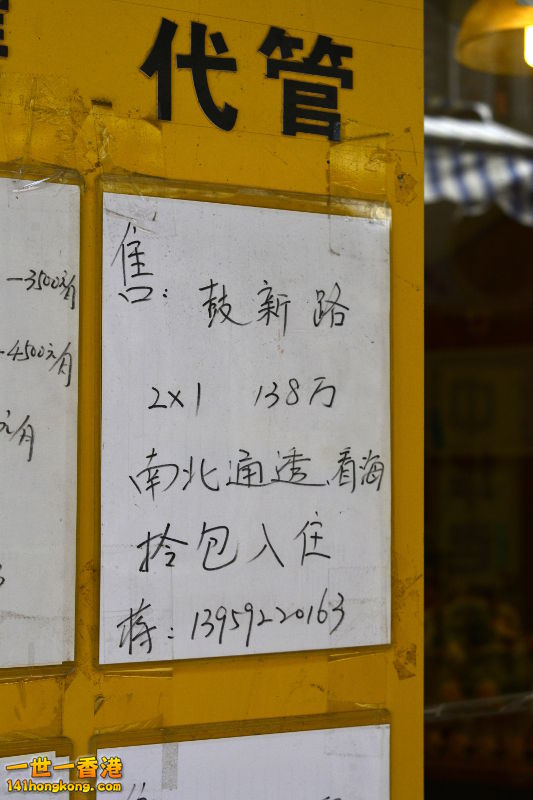 代管
-3500元/月
-4500元/月
元/月
售:鼓新路
2×1 138万
南北通透看海
拎包入住
蒋:13959220163
一世一香港
141hongkong.com